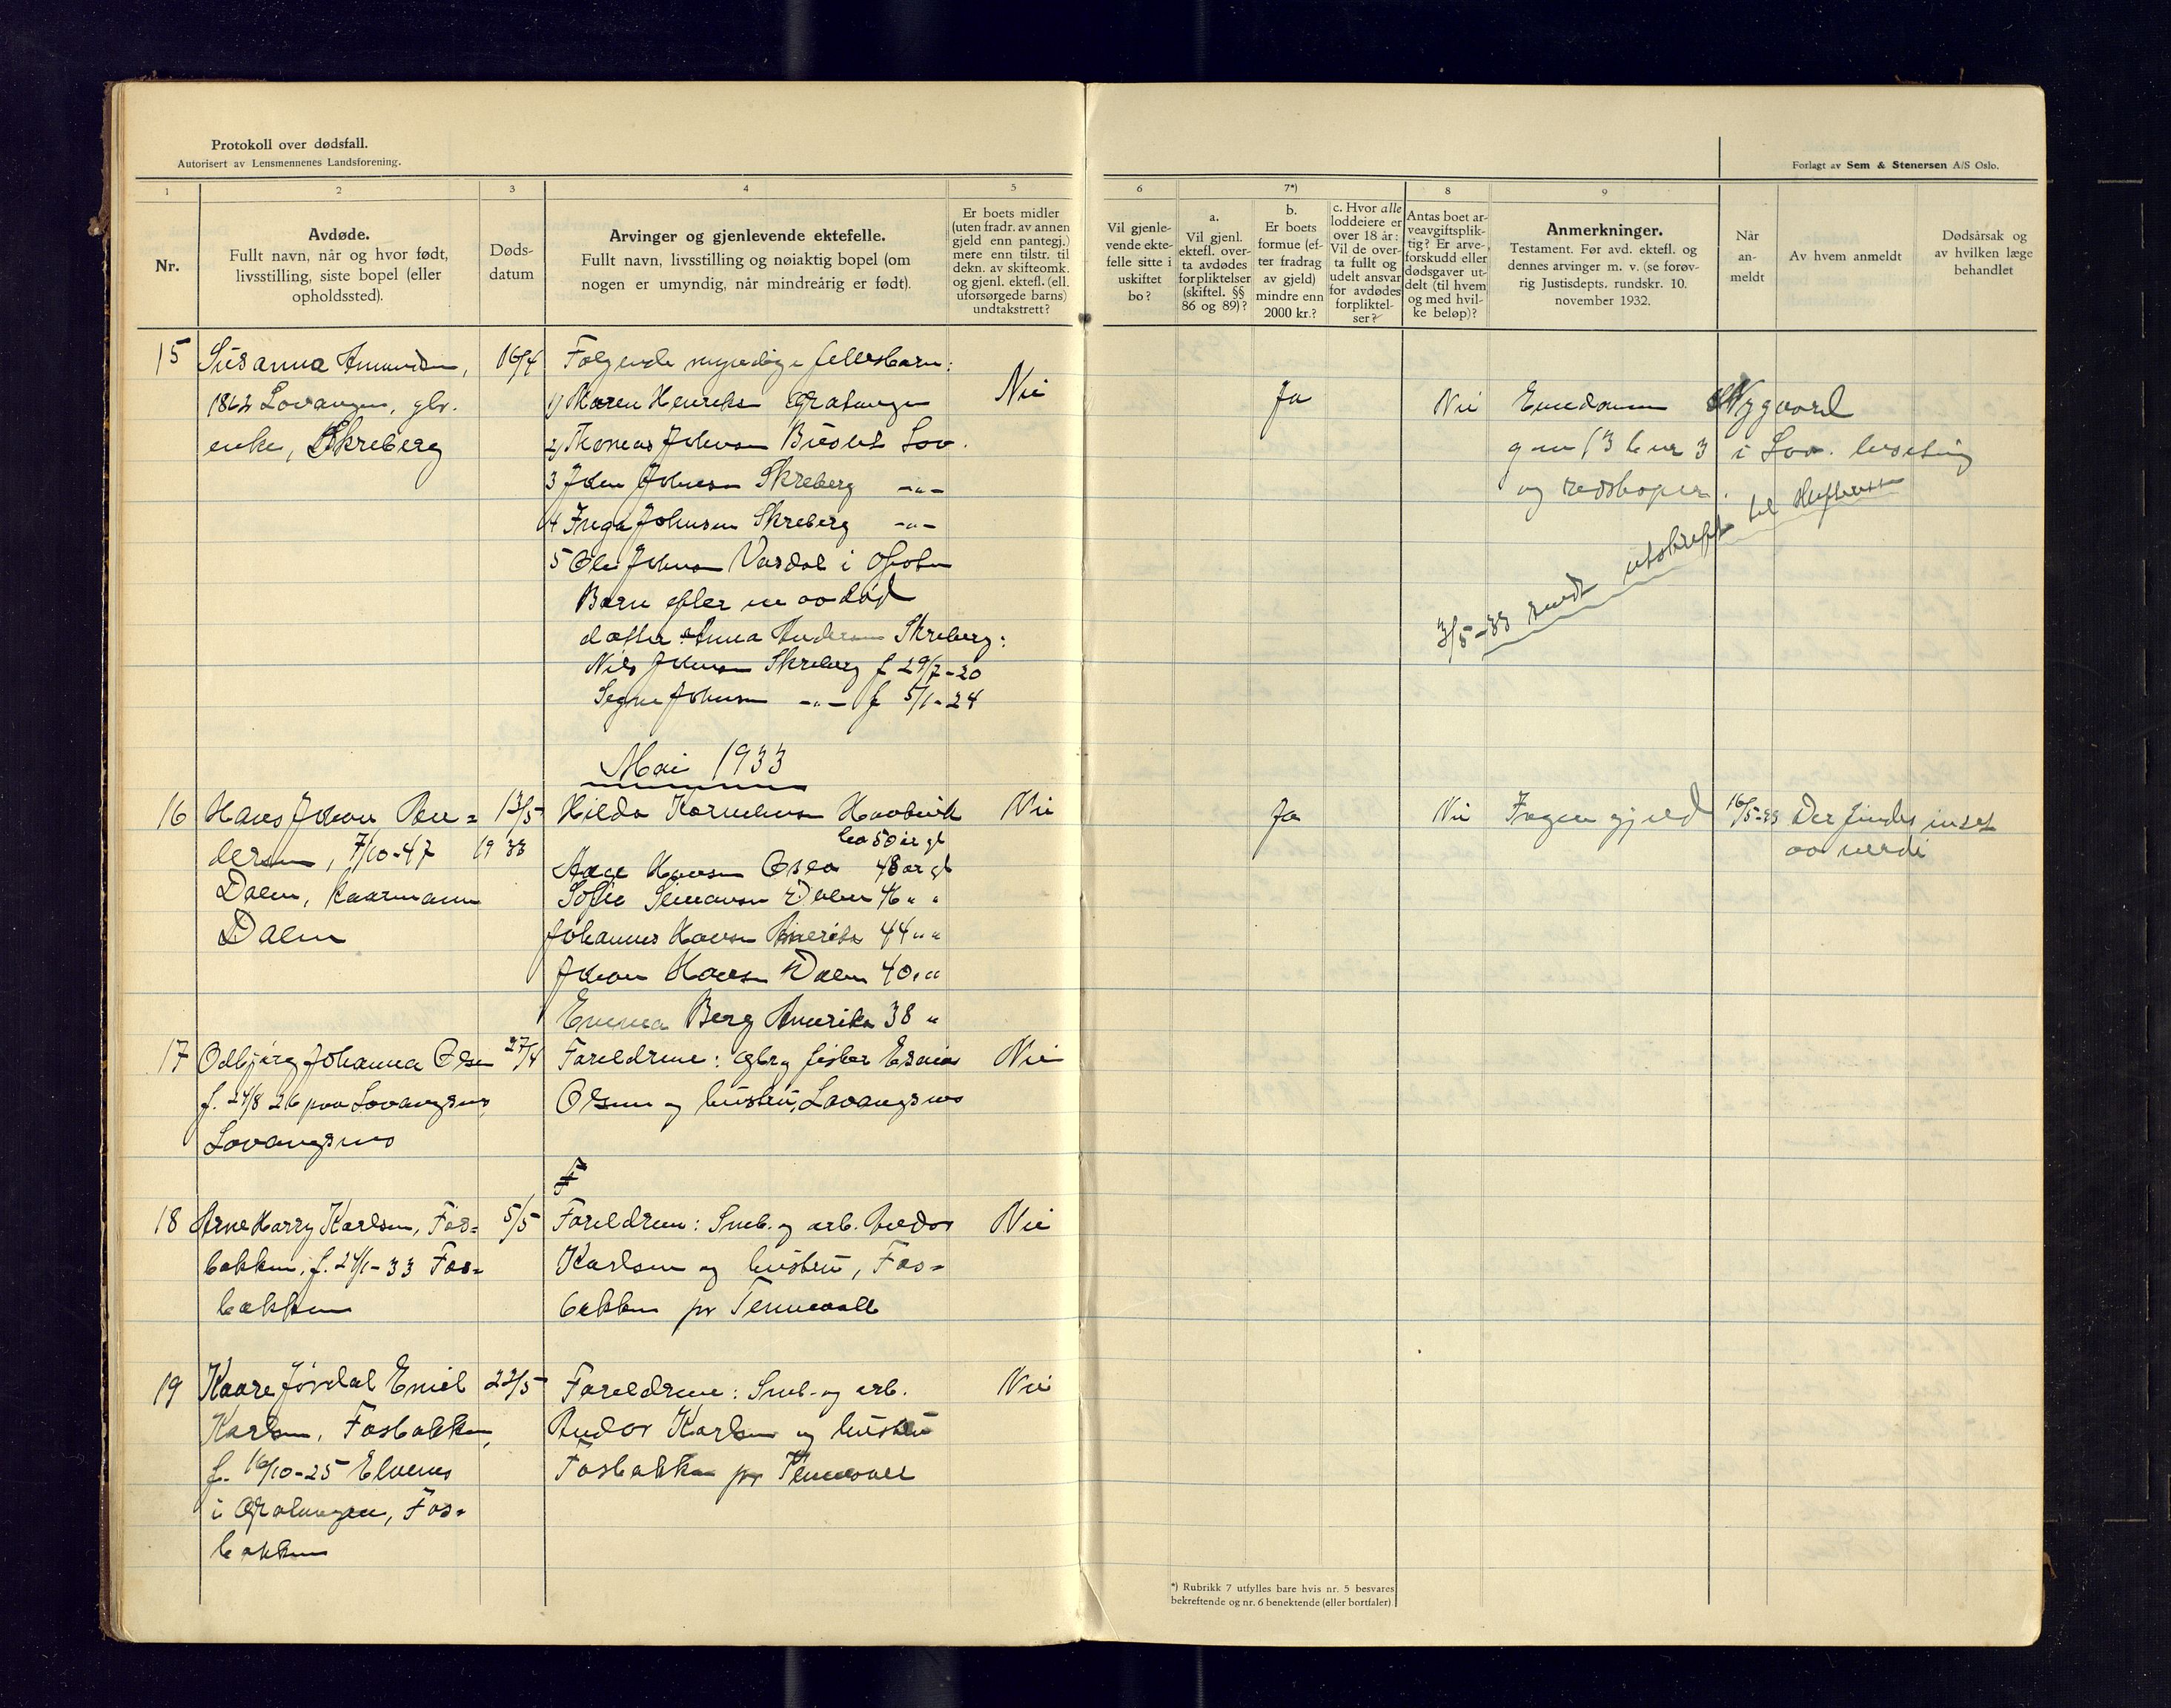 Protokoll over dødsfall.
Autorisert av Lensmennenes Landsforening.
Forlagt av Sem & Stenersen A/S Oslo.
1
2
3
4
5
6
7*)
8
9
Nr.
Avdøde.
Fullt navn, når og hvor født,
livsstilling, siste bopel (eller
opholdssted).
Døds-
datum
Arvinger og gjenlevende ektefelle.
Fullt navn, livsstilling og nøiaktig bopel (om
nogen er umyndig, når mindreårig er født).
Er boets midler
(uten fradr. av annen
gjeld enn pantegj.)
mere enn tilstr. til
dekn. av skifteomk.
og gjenl. ektefl. (ell.
uforsørgede barns)
undtakstrett?
Vil gjenle-
vende ekte-
felle sitte i
uskiftet
bo?
a.
Vil gjenl.
ektefl. over-
ta avdødes
forpliktelser
(skiftel. §§
86 og 89)?
b.
Er boets
formue (ef-
ter fradrag
av gjeld)
mindre enn
2000 kr.?
c. Hvor alle
loddeiere er
over 18 år:
Vil de over-
ta fullt og
udelt ansvar
for avdødes
forpliktel-
ser?
Antas boet ar-
veavgiftsplik-
tig? Er arve-
forskudd eller
dødsgaver ut-
delt (til hvem
og med hvil-
ke beløp)?
Anmerkninger.
Testament. Før avd. ektefl. og
dennes arvinger m. v. (se forøv-
rig Justisdepts. rundskr. 10.
november 1932.
Når
an-
meldt
Av hvem anmeldt
Dødsårsak og
av hvilken læge
behandlet
15 Susanna Amundsen, 16/4 Følgende myndige fellesbarn:
1862 Lavangen, gbr. 1) Maren Henriks Gratangen Nei Ja Nei Eiendommen Nygaard
enke, Skreberg 2) Thomas Johnsen Lav. gnr 13 bnr 3 i Lav. besetning
3 John Johnsen Skreberg -"- og redskaper.
4 Inga Johnsen Skreberg -"-
5 Ole Johnsen i Ofoten
3/5-33 sendt utskrift til
Barn efter en avdød
datter Anna Andersen Skreberg:
Nils Johnsen Skreberg f 29/7-20
Signe Johnsen -"- f 5/1-24
Mai 1933
16 Hans Johan Peder= 13/5 Hilda Kornelius Nei Ja Nei Ingen gjeld 16/5-33 Der findes intet
dersen, 7/10-47 19 33 ca 50 år gl av verdi
Aage Hansen Oslo 48 år gl
Dalen, kaarmann Sofie Simonsen Dalen 46 " "
Dalen Johannes Hansen Amerika 44 " "
Johan Hansen Dalen 40 " "
Emma Berg Amerika 38 "
17 Odbjørg Johanna Olsen 27/4 Foreldrene: gbr og fisker Esaias Nei
f. 24/8 26 paa Lavangsnes Olsen og hustru, Lavangsnes
Lavangsnes
F
18 Arne Harry Karlsen, Fos= 5/5 Foreldrene: Smb. og arb. Andor Nei
bakken, f. 24/1-33 Fos= Karlsen og hustru, Fos=
bakken bakken pr Tennevoll
19 Kaare Jørdal Emiel 22/5 Foreldrene: Smb. og arb. Nei
Karlsen, Fosbakken, Andor Karlsen og hustru
f. 16/10-25 Elvenes Fosbakken pr Tennevoll
i Gratangen, Fos-
bakken
*) Rubrikk 7 utfylles bare hvis nr. 5 besvares
bekreftende og nr. 6 benektende (eller bortfaler)